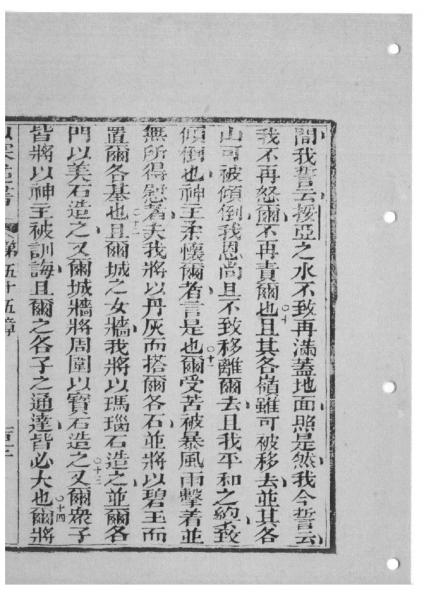 間我誓云挼亞之水不致再滿蓋地面照是然我今誓云
我不再怒爾不再責爾也○十且其各嶺雖可被移去並其各
山可被傾倒我恩尚且不致移離爾去且我平和之約不致
傾倒也神王柔懷爾者言是也○十一爾受苦被暴風雨擊着並
無所得慰者夫我將以丹灰而搭爾各石並將以碧玉而
置爾各基也○十二且爾城之女牆我將以瑪瑙石造之並爾各
門以美石造之又爾城牆將周圍以寶石造之○十三又爾衆子
皆將以神王被訓誨且爾之各子之通達皆必大也○十四爾將
第五十五章